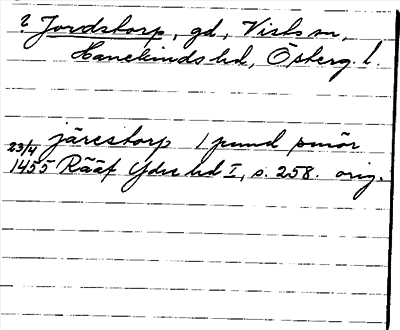 ? Jordstorp, gd, Vists sn,
Hanekinds hd, Österg. l.
järestorp 1 pund smör
23/4 1455 Rääf Ydre hd I, s. 258. orig.